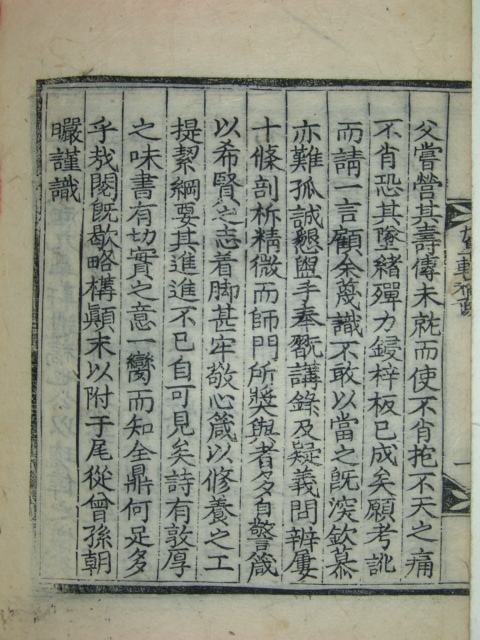 父嘗營其壽傳未就而使不肖抱不天之痛
不肖恐其墜緖殫力鋟梓板已成矣願考訛
而請一言顧余蔑識不敢以當之旣深欽慕
亦難孤誠懇盥手奉翫講錄及疑義問辨屢
十條剖析精微而師門所奬與者多自警箴
以希賢之志着脚甚牢敬心箴以修養之工
提絜綱要其進進不已自可見矣詩有敦厚
之味書有切實之意一臠而知全鼎何足多
乎哉閱旣歇略構顚末以附于尾從曾孫朝
曮謹識